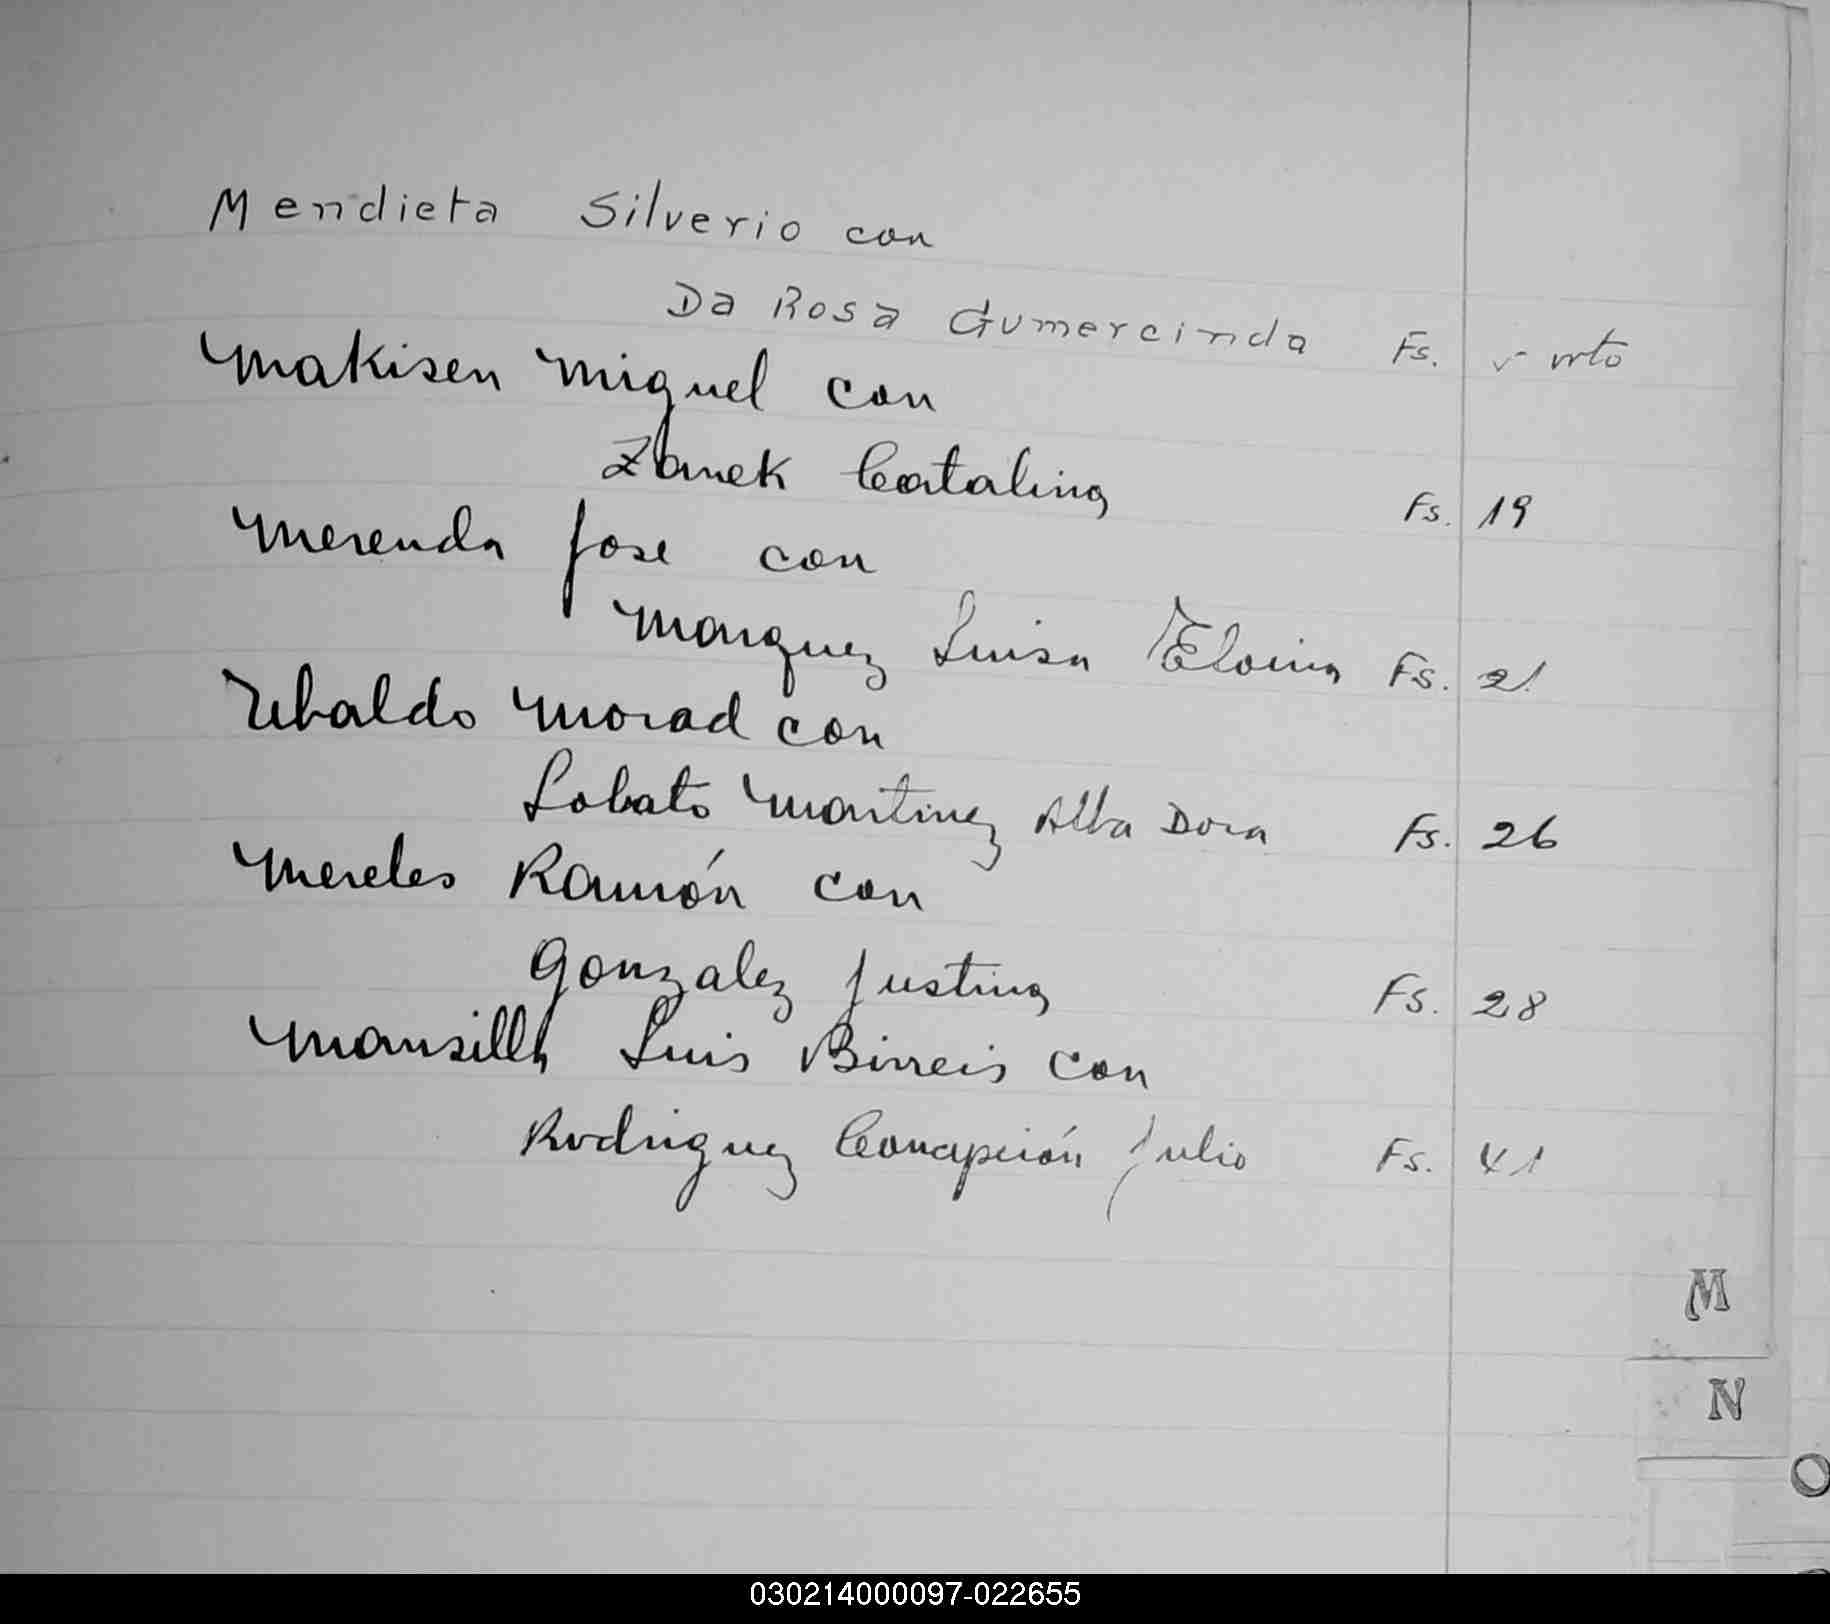 Mendieta Silverio con
Da Rosa Gumercinda Fs. vto
Makisen Miguel con
Zanek Catalina Fs. 19
Merenda Jose con
Marquez Luisa Eloina Fs. 21
Ubaldo Morad con
Lobato Martinez Alba Dora Fs. 26
Mereles Ramón con
Gonzalez Justina Fs. 28
Mansilla Luis con
Rodriguez Concepción Julio Fs. 41
M
N
O
030214000097-022655